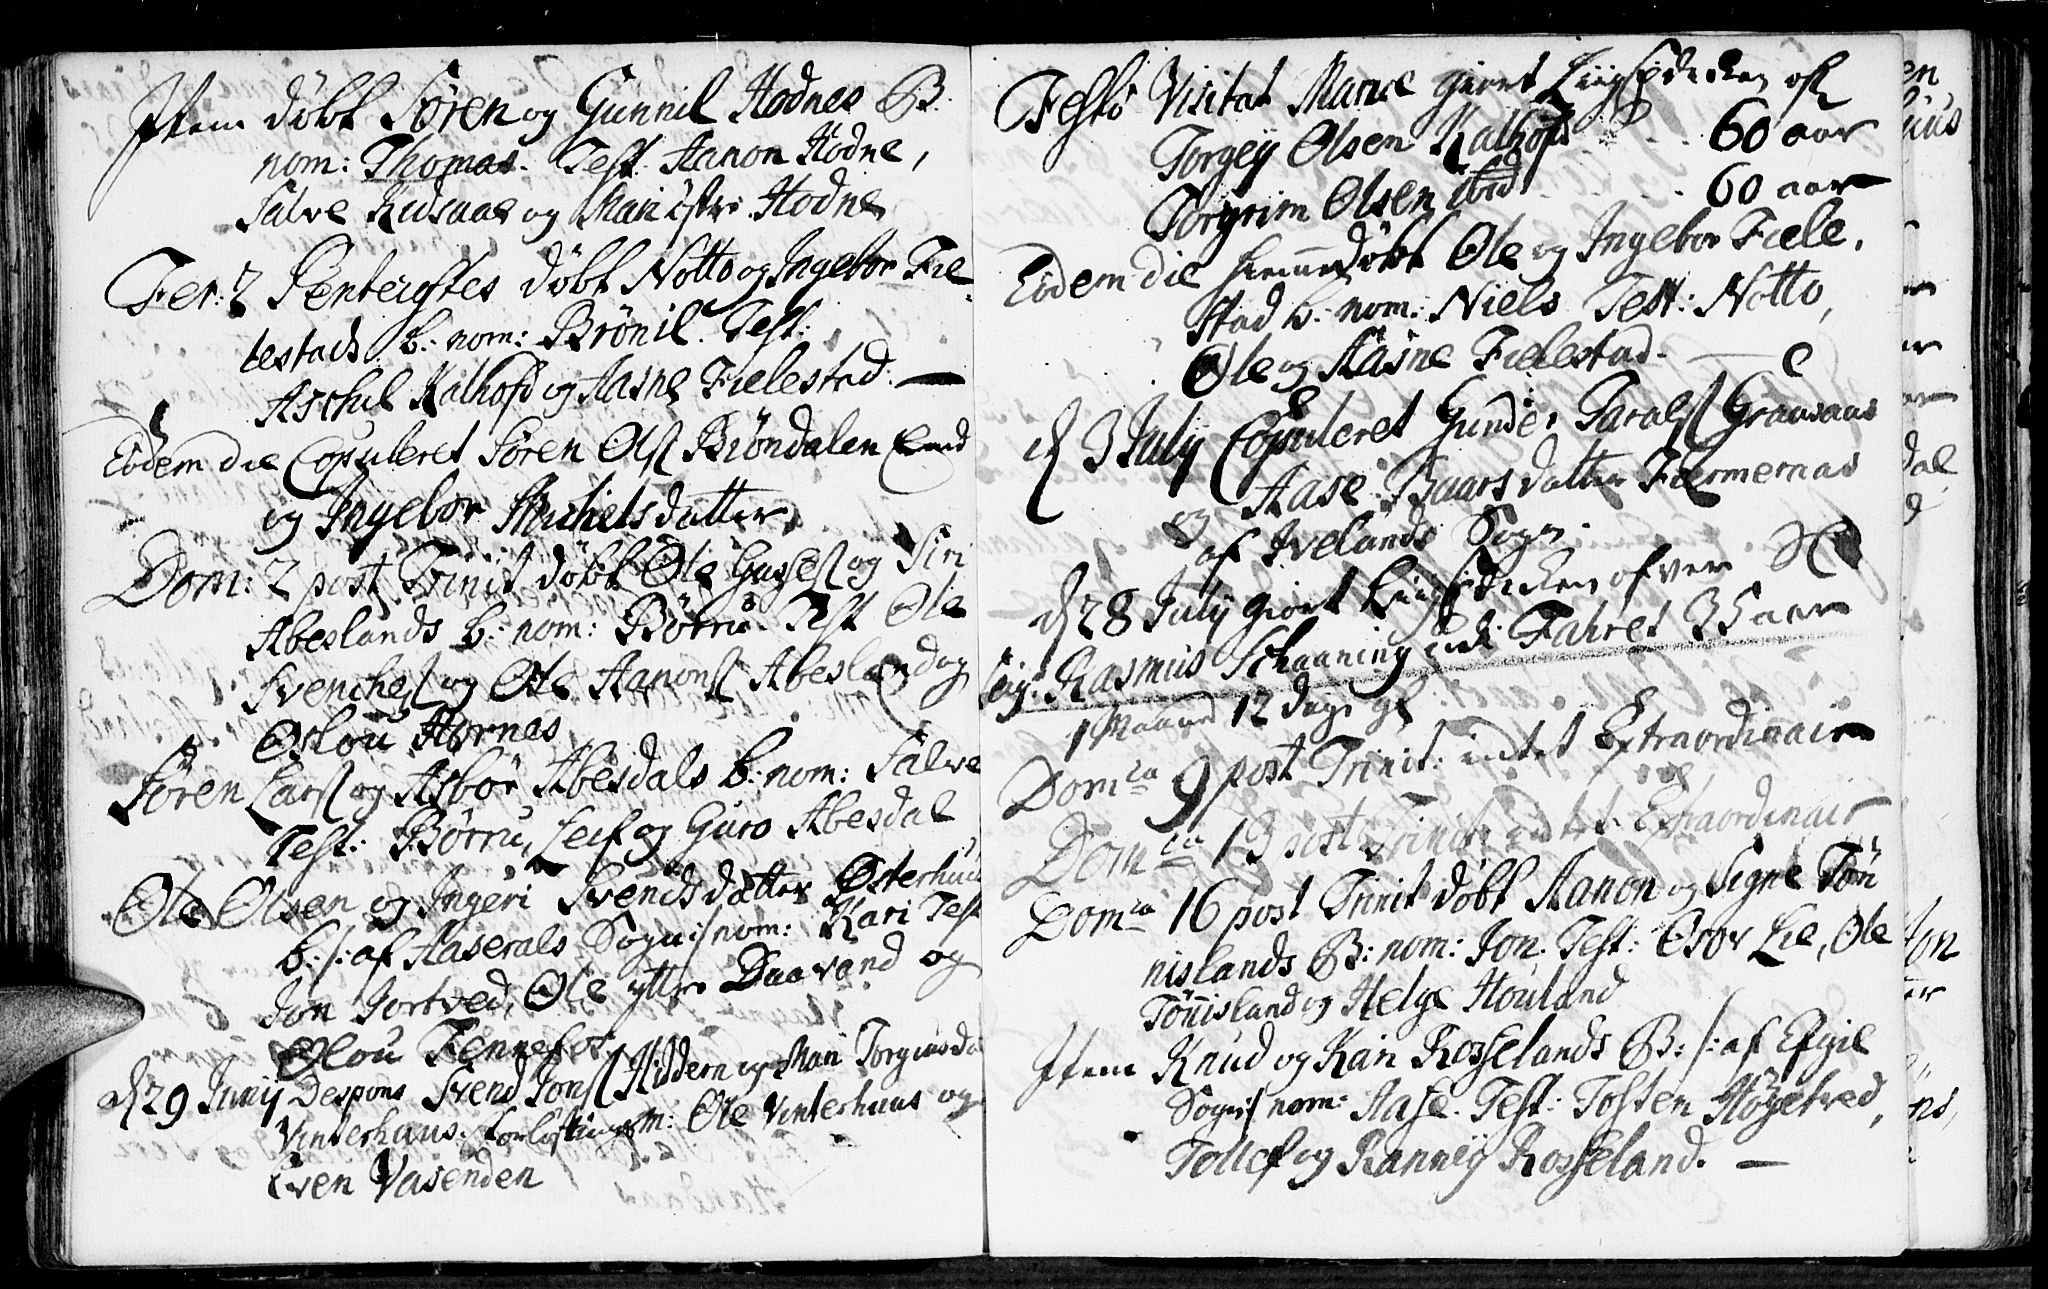 Item døbt Søren og Gunnil Hodnes B.
nom: Thomas. Test. Aanon Hodne,
Salve Kidsaae og Mari østre Hodne
Fer: 2 Pentecostes døbt Notto og Ingebor Fie-
lestads b: nom: Brönil. Test:
Aschil Kalhofd og Aasne Fielestad.
Eodem die Copuleret Søren Ols: Biöndalen
og Ingebor Michelsdatter
Dom: 2 post Trinit døbt Ole Gusses: og Siri
Abeslands b: nom: Børru. Test Ole
Svenches: og Ole Aanons: Abesland og
Oslou Hornes
Søren Lars: og Asbör Abesdals b: nom: Salve
Test: Børru, Leif og Guro Abesdal
Ole Olsen og Ingeri Svendsdatter Østerhuus
b: /: af Aaserals Sogn :/ nom: Kari Test
Jon Jortved, Ole ytre Daavand og
Olou Fennefos
d 29 Junij Despons Svend Jons: Hiddern og Mari Torgiusd
Vinterhuus. Forlöftingsm: Ole Vinterhuus og
Even Vasenden
Festo Visitat Mariæ giort Liigprædicken ofr
Torgej Olsen Kalhofd 60 aar
Torgrim Olsen ibid 60 aar
Eodem die hiemmedøbt Ole og Ingebor Fiele-
stad b: nom: Niels Test: Notto,
Ole og Aasne Fielestad.
d 3 July Copuleret Gunder Tarals: Grausaas
og Aase Baarsdatter Fiermernas
af Ivelands Sogn.
d 28 July giort Liigprædicken ofver
Sig: Rasmus Schaaning ved Fahret 35 aar
1 Maaned 12 dage gl
Domca 9 post Trinit: intet Extraordinair
Domca 13 post Trinit: intet Extraordinair
Domca 16 post Trinit døbt Aanon og Signe Tön
nislands B: nom: Jon. Test: Osov Lie, Ole
Tönisland og Helge Houland
Item Knud og Kari Rosselands B: /: af Efgie
Sogn :/ nom: Aase. Test: Tosten Högetved,
Tollef og Rannej Rosseland.